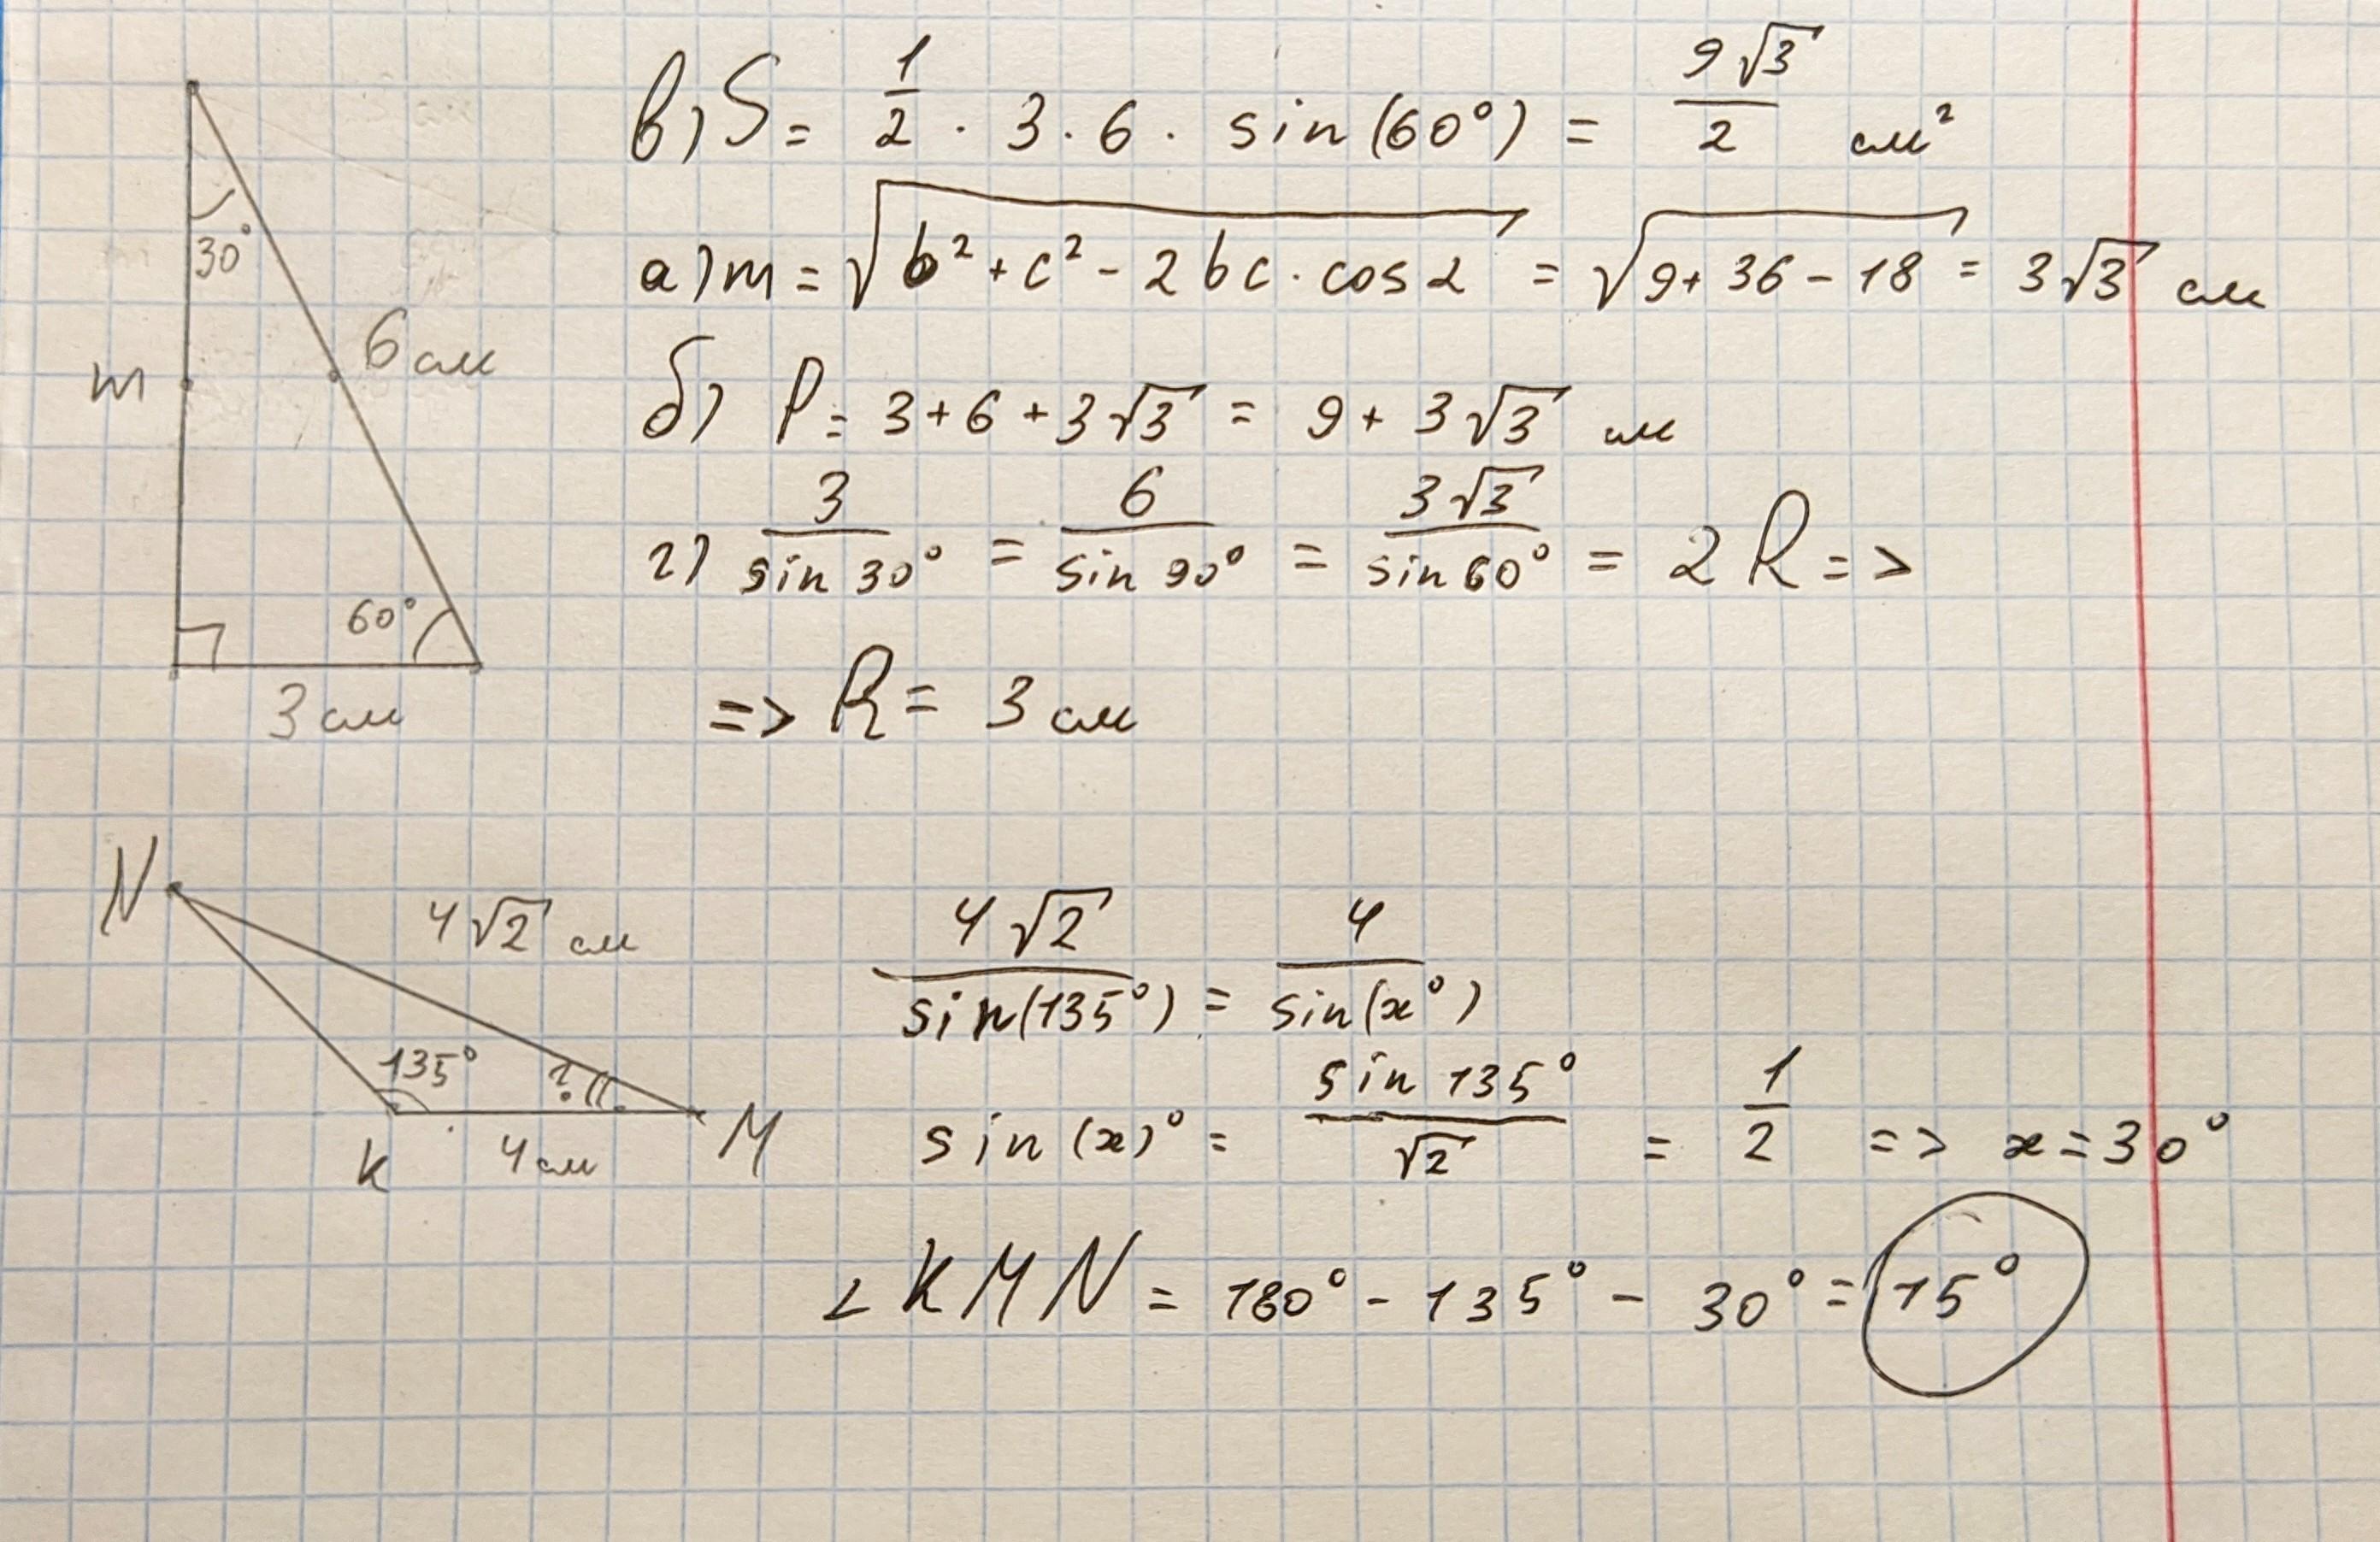 в) S = 1/2 · 3 · 6 · sin(60°) = 9√3/2 см²
а) m = √(b² + c² - 2bc · cos α) = √(9 + 36 - 18) = 3√3 см
б) P = 3 + 6 + 3√3 = 9 + 3√3 см
г) 3/sin 30° = 6/sin 90° = 3√3/sin 60° = 2R =>
=> R = 3 см
30°
m
6 см
60°
3 см
N
4√2 см
135°
?
K
4 см
M
4√2/sin(135°) = 4/sin(x°)
sin(x)° = sin 135°/√2 = 1/2 => x = 30°
∠KMN = 180° - 135° - 30° = 15°